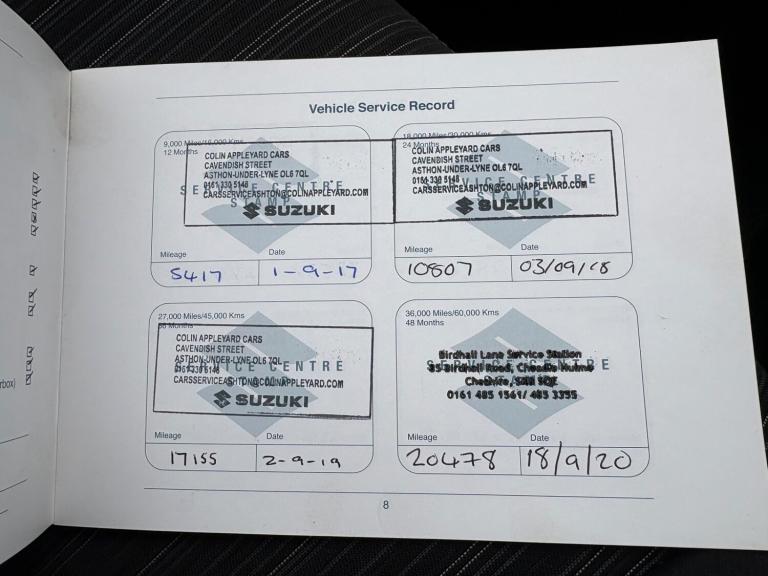 Vehicle Service Record
9,000 Miles/15,000 Kms
12 Months
COLIN APPLEYARD CARS
CAVENDISH STREET
ASTHON-UNDER-LYNE OL6 7QL
0161 330 5148
CARSSERVICEASHTON@COLINAPPLEYARD.COM
SERVICE CENTRE
STAMP
SUZUKI
Mileage
Date
5417
1-9-17
18,000 Miles/30,000 Kms
24 Months
COLIN APPLEYARD CARS
CAVENDISH STREET
ASTHON-UNDER-LYNE OL6 7QL
0161 330 5148
CARSSERVICEASHTON@COLINAPPLEYARD.COM
SERVICE CENTRE
SUZUKI
Mileage
Date
10807
03/09/18
27,000 Miles/45,000 Kms
36 Months
COLIN APPLEYARD CARS
CAVENDISH STREET
ASTHON-UNDER-LYNE OL6 7QL
0161 330 5148
CARSSERVICEASHTON@COLINAPPLEYARD.COM
SERVICE CENTRE
SUZUKI
Mileage
Date
17155
2-9-19
36,000 Miles/60,000 Kms
48 Months
SERVICE CENTRE
Birdhall Lane Service Station
35 Birdhall Road, Cheadle Hulme
Cheshire,
0161 485 1561/ 485 3355
Mileage
Date
20478
18/9/20
8
rbox)